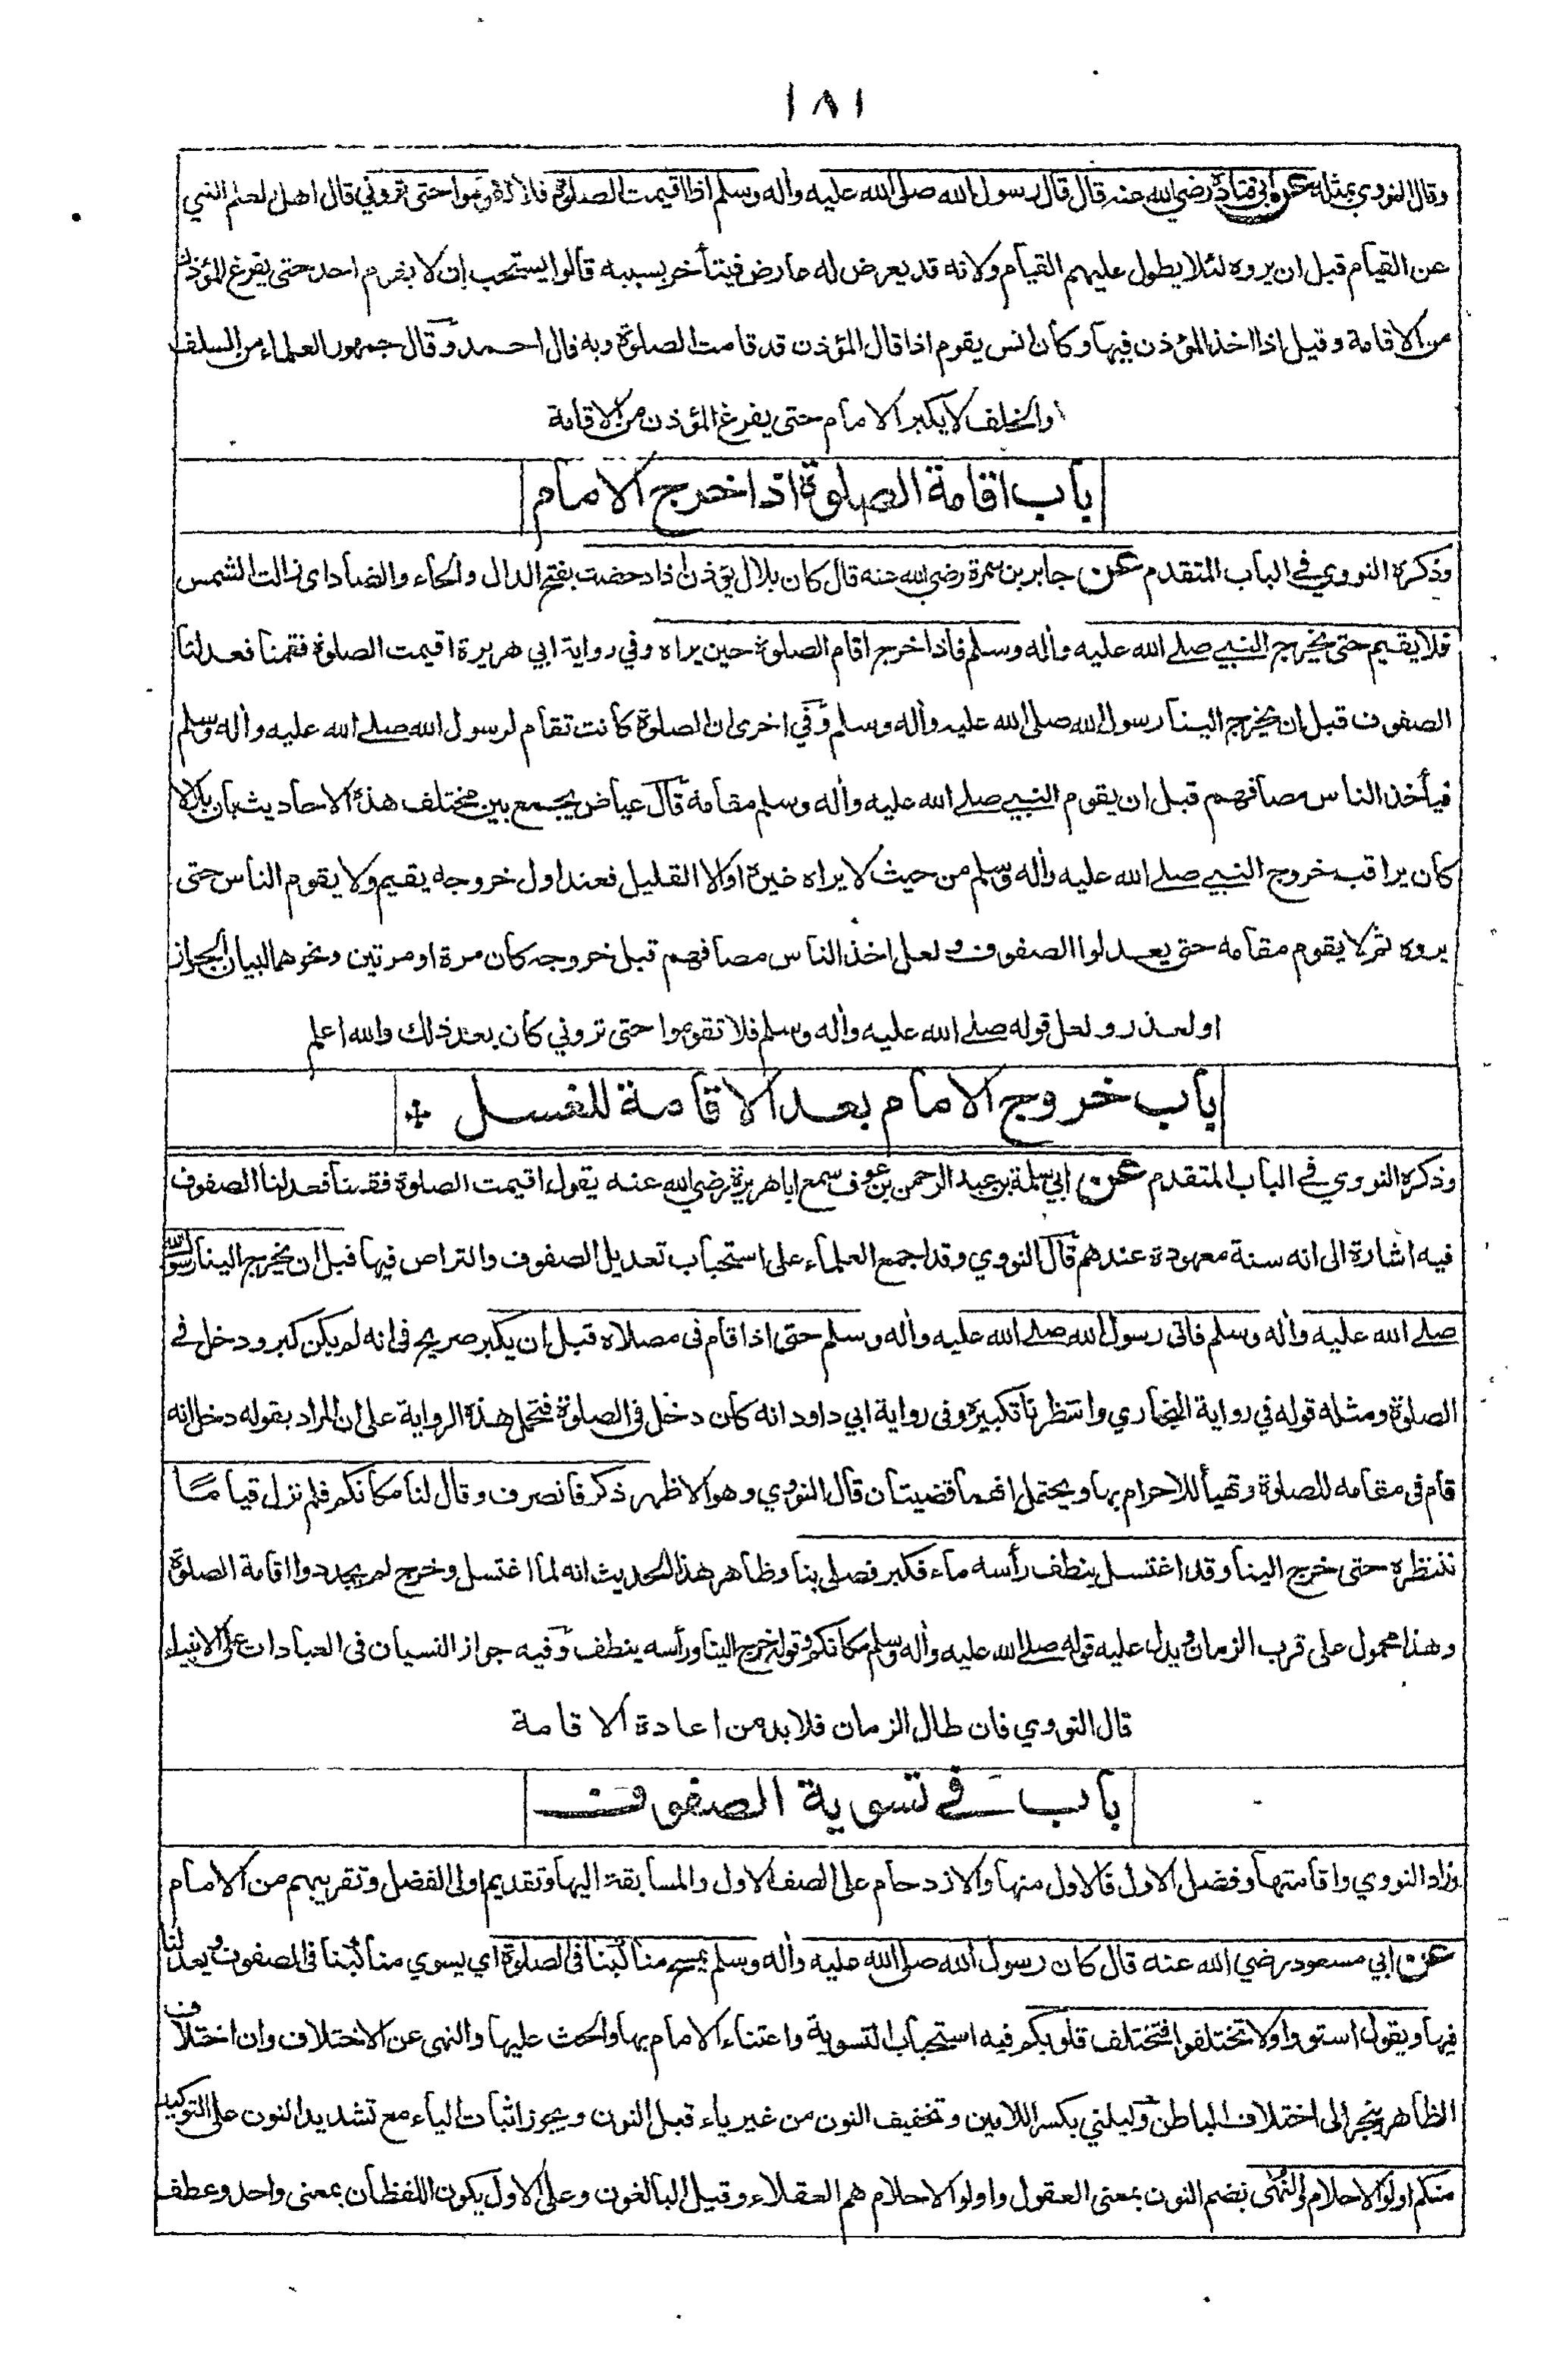 ١٨١
وقال النووي بمثله عن ابي قتادة رضي الله عنه قال قال رسول الله صلى الله عليه واٰله وسلم اذا اقيمت الصلوة فلا تقوموا حتى تروني قال اهل العلم النهي
عن القيام قبل ان يروه لئلا يطول عليهم القيام ولانه قد يعرض له عارض فيتأخر بسببه قالوا يستحب ان لا يقوم احد حتى يفرغ المؤذن
من الاقامة وقيل اذا اخذ المؤذن فيها وكان انس يقوم اذا قال المؤذن قد قامت الصلوة وبه قال احمد وقال جمهور العلماء من السلف
والخلف لا يكبر الامام حتى يفرغ المؤذن من الاقامة
باب اقامة الصلوة اذا خرج الامام
وذكره النووي في الباب المتقدم عن جابر بن سمرة رضي الله عنه قال كان بلال يؤذن اذا دحضت بفتح الدال والحاء والضاد اى زالت الشمس
فلا يقيم حتى يخرج النبي صلے الله عليه واٰله وسلم فاذا خرج اقام الصلوة حين يراه وفي رواية ابي هريرة اقيمت الصلوة فقمنا فعدلنا
الصفوف قبل ان يخرج الينا رسول الله صلى الله عليه واٰله وسلم وفي اخرى ان الصلوة كانت تقام لرسول الله صلے الله عليه واٰله وسلم
فيأخذ الناس مصافهم قبل ان يقوم النبي صلے الله عليه واٰله وسلم مقامه قال عياض يجمع بين مختلف هذه الاحاديث بان بلالا
كان يراقب خروج النبي صلے الله عليه واٰله وسلم من حيث لا يراه غيره او الا القليل فعند اول خروجه يقيم ولا يقوم الناس حتى
يروه ثم لا يقوم مقامه حتى يعدلوا الصفوف ولعل اخذ الناس مصافهم قبل خروجه كان مرة او مرتين ونحوهما لبيان الجواز
او لعذر ولعل قوله صلے الله عليه واٰله وسلم فلا تقوموا حتى تروني كان بعد ذلك والله اعلم
باب خروج الامام بعد الاقامة للغسل
وذكره النووي في الباب المتقدم عن ابي سلمة بن عبد الرحمن بن عوف سمع ابا هريرة رضي الله عنه يقول اقيمت الصلوة فقمنا فعدلنا الصفوف
فيه اشارة الى انه سنة معهودة عندهم قال النووي وقد اجمع العلماء على استحباب تعديل الصفوف والتراص فيها قبل ان يخرج الينا رسول الله
صلے الله عليه واٰله وسلم فاتى رسول الله صلے الله عليه واٰله وسلم حتى اذا قام فى مصلاه قبل ان يكبر صريح فى انه لم يكن كبر ودخل في
الصلوة ومثله قوله في رواية البخاري وانتظرنا تكبيره وفى رواية ابي داود انه كان دخل فى الصلوة فتحمل هذه الرواية على ان المراد بقوله دخل انه
قام فى مقامه للصلوة وتهيأ للاحرام بها ويحتمل انهما قضيتان قال النووي وهو الاظهر ذكر فانصرف وقال لنا مكانكم فلم نزل قياما
ننتظره حتى خرج الينا وقد اغتسل ينطف رأسه ماء فكبر فصلى بنا وظاهر هذا الحديث انه لما اغتسل وخرج لم يجددوا اقامة الصلوة
وهذا محمول على قرب الزمان ويدل عليه قوله صلے الله عليه واٰله وسلم مكانكم وقوله خرج الينا ورأسه ينطف وفيه جواز النسيان فى العبادات على الانبياء
قال النووي فان طال الزمان فلا بد من اعادة الاقامة
باب في تسوية الصفوف
وزاد النووي واقامتها وفضل الاول فالاول منها والازدحام على الصف الاول والمسابقة اليها وتقديم اولى الفضل وتقريبهم من الامام
عن ابي مسعود رضي الله عنه قال كان رسول الله صلى الله عليه واٰله وسلم يمسح مناكبنا فى الصلوة اي يسوي مناكبنا فى الصفوف ويعدلنا
فيها ويقول استووا ولا تختلفوا فتختلف قلوبكم فيه استحباب التسوية واعتناء الامام بها والحث عليها والنهى عن الاختلاف وان اختلاف
الظاهر ينجر الى اختلاف الباطن وليلني بكسر اللامين وتخفيف النون من غير ياء قبل النون ويجوز اثبات الياء مع تشديد النون على التوكيد
منكم اولو الاحلام والنهى بضم النون بمعنى العقول واولو الاحلام هم العقلاء وقيل البالغون وعلى الاول يكون اللفظان بمعنى واحد وعطف